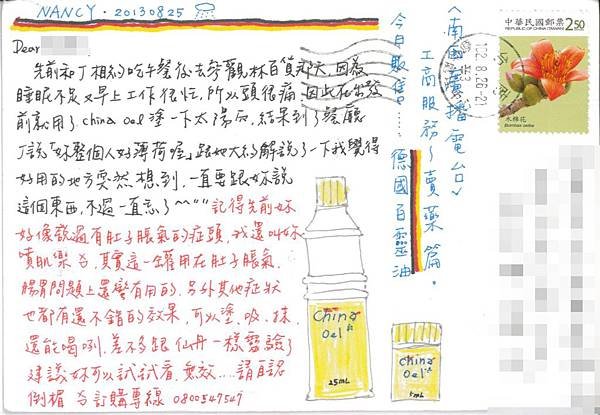 NANCY · 20130825
Dear
先前和丁相約吃午餐後去參觀林百貨那天，因為
睡眠不足又早上工作很忙，所以頭很痛，因此在出發
前就用了china oel塗一下太陽穴，結果到了餐廳
丁說「妳整個人好薄荷喔」跟她大約解說了一下我覺得
好用的地方突然想到，一直要跟妳說
這個東西，不過一直忘了^^"" 記得先前妳
好像說過有肚子脹氣的症頭，我還叫妳
噴肌樂，其實這一罐用在肚子脹氣、
腸胃問題上還蠻有用的，另外其他症狀
也都有還不錯的效果，可以塗、吸、抹、
還能喝咧，差不多跟仙丹一樣靈驗了
建議妳可以試試看，無效....請自認
倒楣 訂購專線 0800547547
〈南國 播電台〉
工商服務~賣藥篇·
今日販售……德國百靈油
China
Oel
25mL
China
Oel
5mL
中華民國郵票
REPUBLIC OF CHINA (TAIWAN)
2.50
木棉花
Bombax ceiba
102.8.26-21